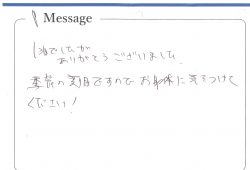 Message
1泊でしたが
ありがとうございました。
季節の変り目ですので お身体に気をつけて
ください！